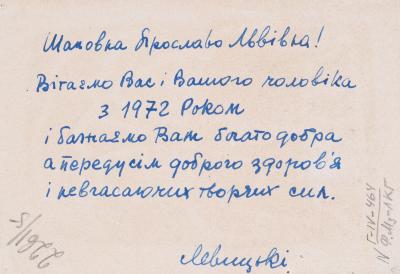 Шановна Ярославо Львівна!
Вітаємо Вас і Вашого чоловіка
з 1972 Роком
і бажаємо Вам богато добра
а передусім доброго здоров'я
і невгасаючих творчих сил.
Левицькі
2261/5
N Г-IV-464
Ф.Мз-ЛКГ